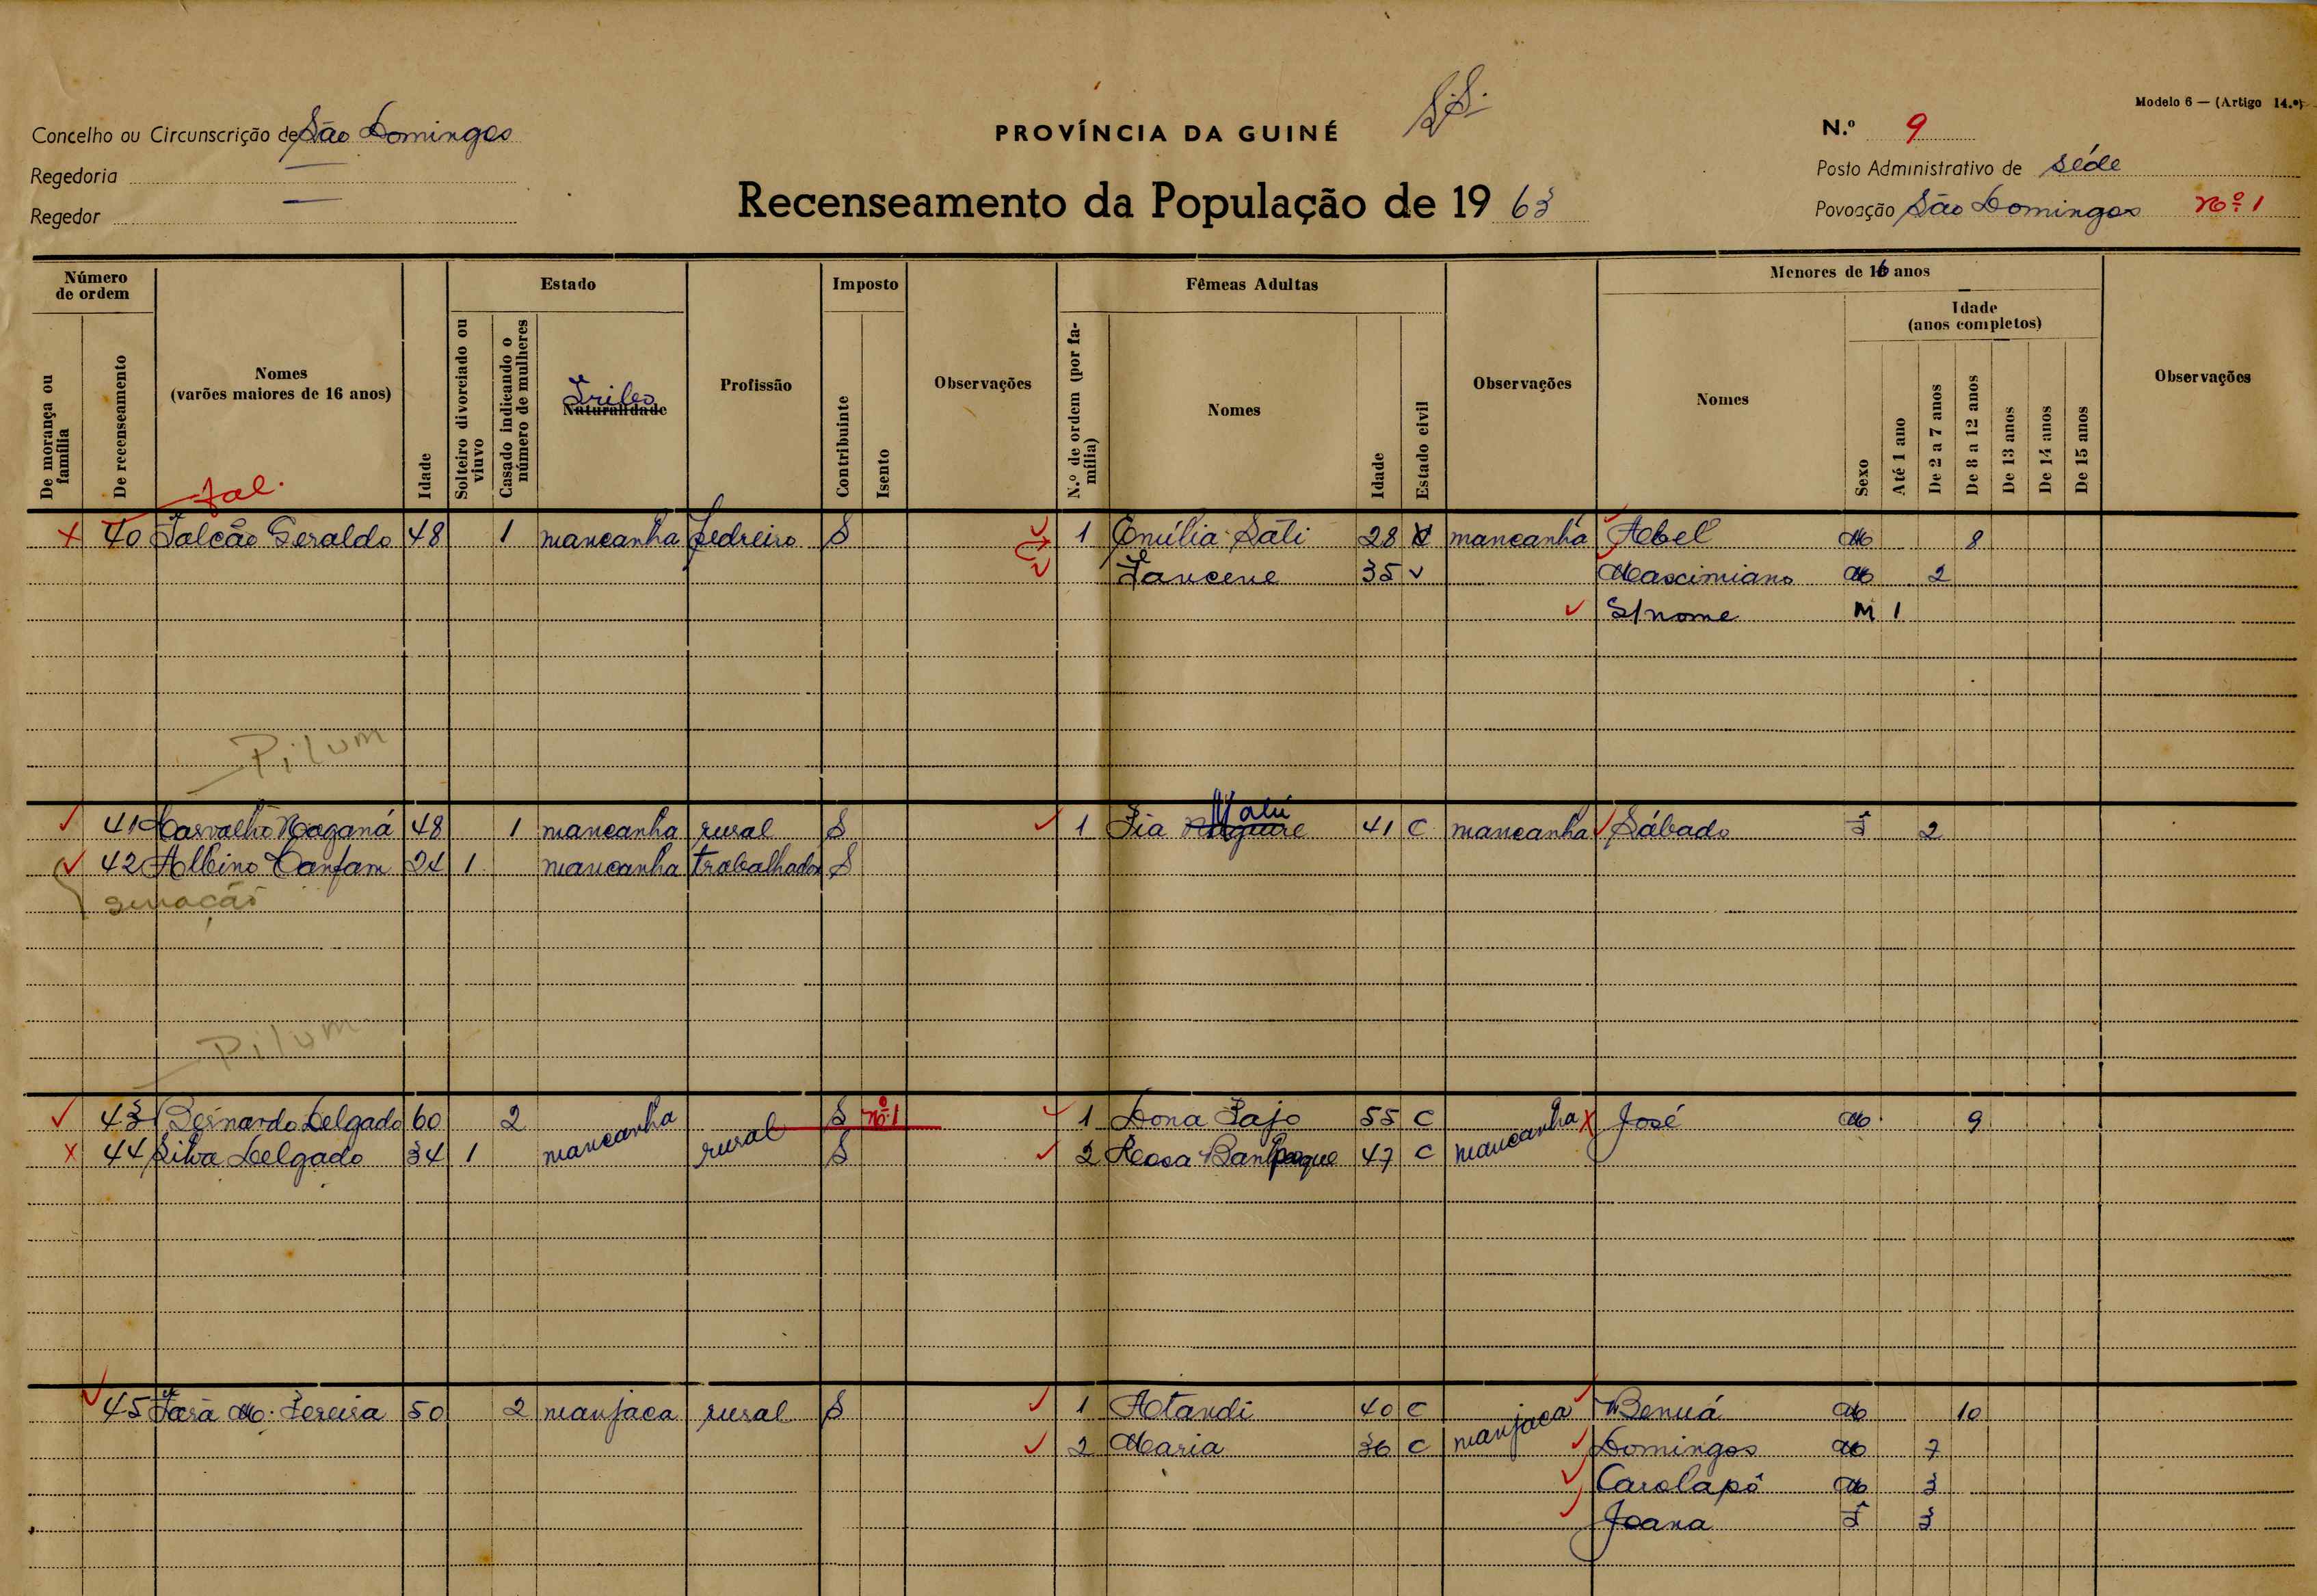 S.S.
Modelo 6 — (Artigo 14.º)
Concelho ou Circunscrição de São Domingos
PROVÍNCIA DA GUINÉ
N.º 9
Regedoria —
Posto Administrativo de séde
Regedor —
Recenseamento da População de 19 63
Povoação São Domingos nº 1
Número de ordem
De morança ou família
De recenseamento
Nomes
(varões maiores de 16 anos)
Idade
Estado
Solteiro divorciado ou viuvo
Casado indicando o número de mulheres
Tribo
Naturalidade
Profissão
Imposto
Contribuinte
Isento
Observações
Fêmeas Adultas
N.º de ordem (por família)
Nomes
Idade
Estado civil
Observações
Menores de 16 anos
Nomes
Sexo
Idade
(anos completos)
Até 1 ano
De 2 a 7 anos
De 8 a 12 anos
De 13 anos
De 14 anos
De 15 anos
Observações
fal.
40 Falcão Geraldo 48 1 mancanha pedreiro S 1 Emília Sáti 28 V mancanha Abel M 8
35 V Mascimiano M 2
S/nome M 1
Pilum
41 Carvalho Naganá 48 1 mancanha rural S 1 Fia Malú 41 C mancanha Sábado F 2
42 Albino Canfam 24 1 mancanha trabalhador S
Pilum
43 Bernardo Delgado 60 2 mancanha rural S nº 1 1 Dona Pajo 55 C mancanha José M 9
44 Silva Delgado 34 1 S 2 Rosa 47 C
45 M. Pereira 50 2 manjaca rural S 1 Atandi 40 C manjaca Benuá M 10
2 Maria 36 C Domingos M 7
Carolapó M 3
Joana F 3